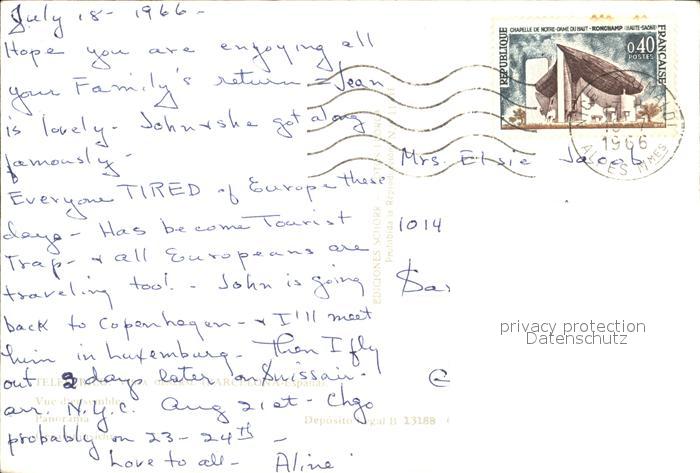 July 18 - 1966 -
Hope you are enjoying all
your Family's return - Jean
is lovely - John & she got along
famously -
Everyone TIRED of Europe these
days - Has become Tourist
Trap - & all Europeans are
traveling too! - John is going
back to Copenhagen - & I'll meet
him in Luxemburg - Then I fly
out 2 days later on Suissair -
arr. N.Y.C. Aug 21st - Chgo
probably on 23 - 24th -
Love to all - Aline
REPUBLIQUE FRANÇAISE
CHAPELLE DE NOTRE-DAME DU HAUT - RONCHAMP (HAUTE-SAÔNE)
0,40
POSTES
1966
ALPES MMES
Mrs. Elsie Jacob
1014
Sar
EDICIONES
Prohibida la
Vue
Panorama
Depósito legal B 13188
privacy protection
Datenschutz